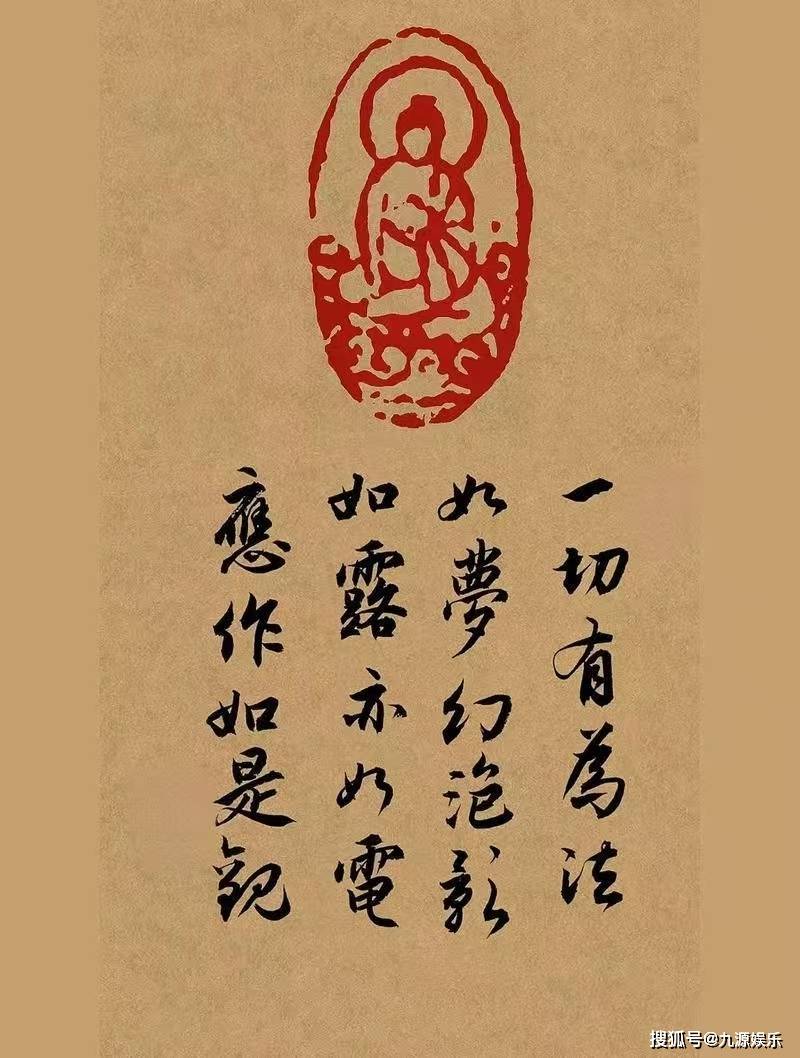 一切有為法
如夢幻泡影
如露亦如電
應作如是觀
搜狐号@九源娱乐